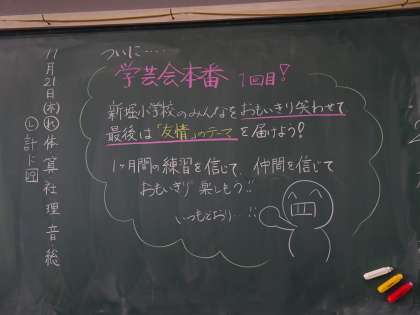 ついに‥‥
学芸会本番 1回目!
新堀小学校のみんなをおもいきり笑わせて
最後は「友情」のテーマを届けよう!
1ヶ月間の練習を信じて、仲間を信じて
おもいきり楽しもう!!
いつもどおり‥!!
11月21日(木)
れ 体 算 社 理 音・総
し 計ド